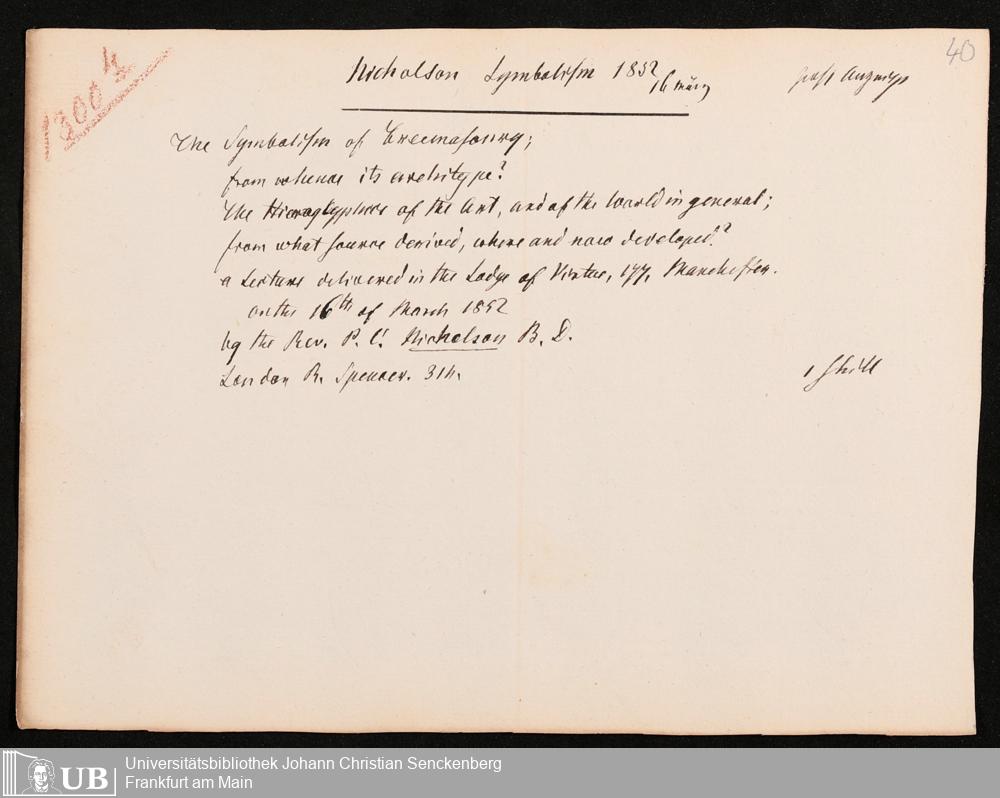 1300 4
40
Nicholson Symbolism 1852
16 März
The Symbolism of Freemasonry;
from whence its architype?
The Hieroglyphics of the Art, and of the World in general;
from what source derived, where and how developed?
a Lecture delivered in the Lodge of Virtue, 177, Manchester.
on the 16th of March 1852
by the Rev. P. C. Nicholson B. D.
London R. Spencer. 314.
1 Shill
UB Universitätsbibliothek Johann Christian Senckenberg
Frankfurt am Main